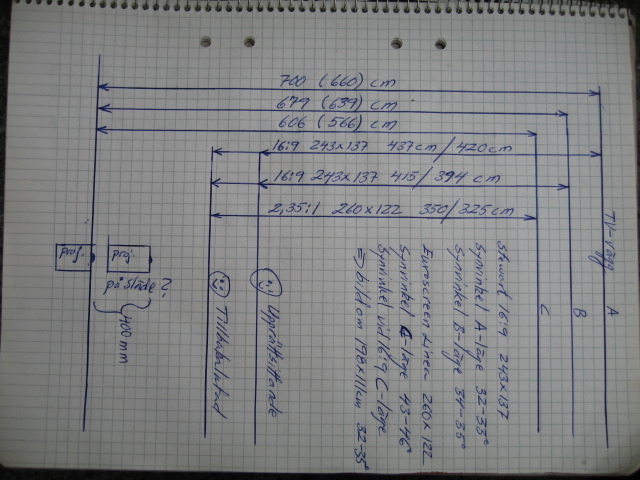 700 (660) cm
679 (639) cm
606 (566) cm
16:9 243x137 437cm/420cm
16:9 243x137 415/394 cm
2,35:1 260x122 350/325cm
TV-vägg
A
B
C
Stewart 16:9 243x137
Synvinkel A-läge 32-33°
Synvinkel B-läge 34-35°
Euroscreen Linen 260x122
Synvinkel C-läge 43-46°
Synvinkel vid 16:9 C-läge
=> bild om 198x111cm 32-35°
Upprättsittande
Tillbakalutad
proj.
proj.
på släde?
400 mm